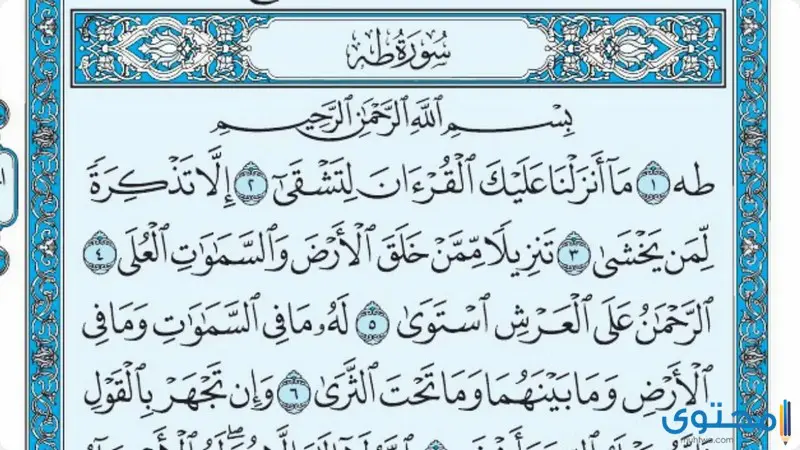 سُورَةُ طه
بِسْمِ ٱللَّهِ ٱلرَّحْمَٰنِ ٱلرَّحِيمِ
طه ١ مَآ أَنزَلْنَا عَلَيْكَ ٱلْقُرْءَانَ لِتَشْقَىٰٓ ٢ إِلَّا تَذْكِرَةً
لِّمَن يَخْشَىٰ ٣ تَنزِيلًا مِّمَّنْ خَلَقَ ٱلْأَرْضَ وَٱلسَّمَٰوَٰتِ ٱلْعُلَى ٤
ٱلرَّحْمَٰنُ عَلَى ٱلْعَرْشِ ٱسْتَوَىٰ ٥ لَهُۥ مَا فِي ٱلسَّمَٰوَٰتِ وَمَا فِي
ٱلْأَرْضِ وَمَا بَيْنَهُمَا وَمَا تَحْتَ ٱلثَّرَىٰ ٦ وَإِن تَجْهَرْ بِٱلْقَوْلِ
محتوى